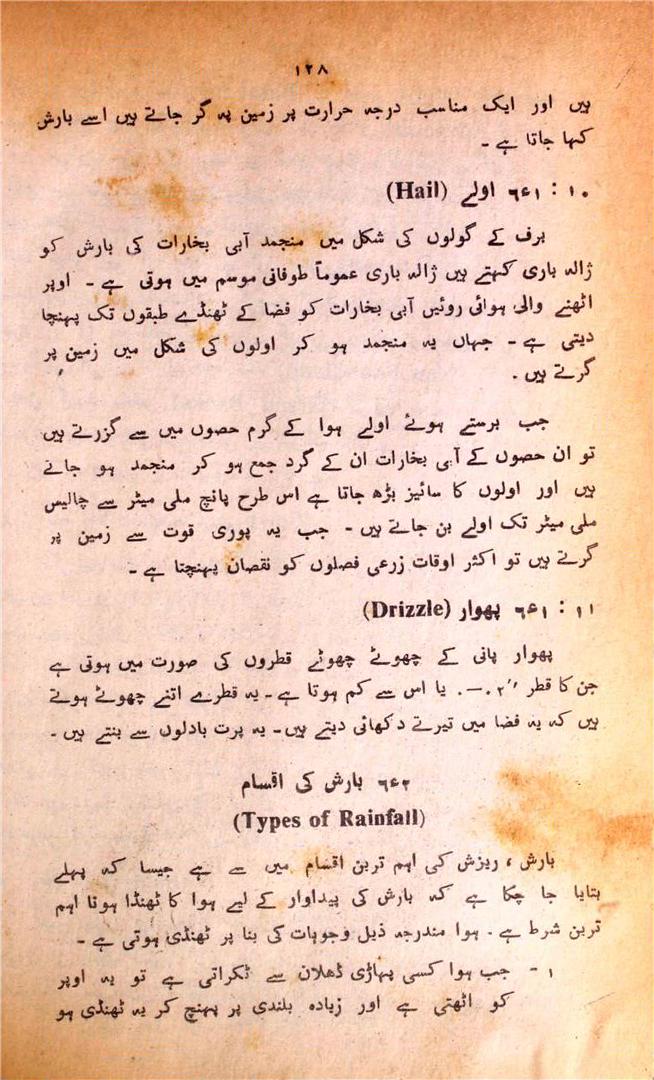 ۱۲۸
ہیں اور ایک مناسب درجہ حرارت پر زمین پہ گر جاتے ہیں اسے بارش
کہا جاتا ہے ۔
۱۰ : ۶ء۱ اولے (Hail)
برف کے گولوں کی شکل میں منجمد آبی بخارات کی بارش کو
ژالہ باری کہتے ہیں ژالہ باری عموماً طوفانی موسم میں ہوتی ہے ۔ اوپر
اٹھنے والی ہوائی روئیں آبی بخارات کو فضا کے ٹھنڈے طبقوں تک پہنچا
دیتی ہے ۔ جہاں یہ منجمد ہو کر اولوں کی شکل میں زمین پر
گرتے ہیں ۔
جب برستے ہوئے اولے ہوا کے گرم حصوں میں سے گزرتے ہیں
تو ان حصوں کے آبی بخارات ان کے گرد جمع ہو کر منجمد ہو جاتے
ہیں اور اولوں کا سائیز بڑھ جاتا ہے اس طرح پانچ ملی میٹر سے چالیس
ملی میٹر تک اولے بن جاتے ہیں ۔ جب یہ پوری قوت سے زمین پر
گرتے ہیں تو اکثر اوقات زرعی فصلوں کو نقصان پہنچتا ہے ۔
۱۱ : ۶ء۱ پھوار (Drizzle)
پھوار پانی کے چھوٹے چھوٹے قطروں کی صورت میں ہوتی ہے
جن کا قطر ″۰۲۔۰ یا اس سے کم ہوتا ہے ۔ یہ قطرے اتنے چھوٹے ہوتے
ہیں کہ یہ فضا میں تیرتے دکھائی دیتے ہیں ۔ یہ پرت بادلوں سے بنتے ہیں ۔
۶ء۲ بارش کی اقسام
(Types of Rainfall)
بارش ، ریزش کی اہم ترین اقسام میں سے ہے جیسا کہ پہلے
بتایا جا چکا ہے کہ بارش کی پیداوار کے لیے ہوا کا ٹھنڈا ہونا اہم
ترین شرط ہے ۔ ہوا مندرجہ ذیل وجوہات کی بنا پر ٹھنڈی ہوتی ہے ۔
۱ - جب ہوا کسی پہاڑی ڈھلان سے ٹکراتی ہے تو یہ اوپر
کو اٹھتی ہے اور زیادہ بلندی پر پہنچ کر یہ ٹھنڈی ہو